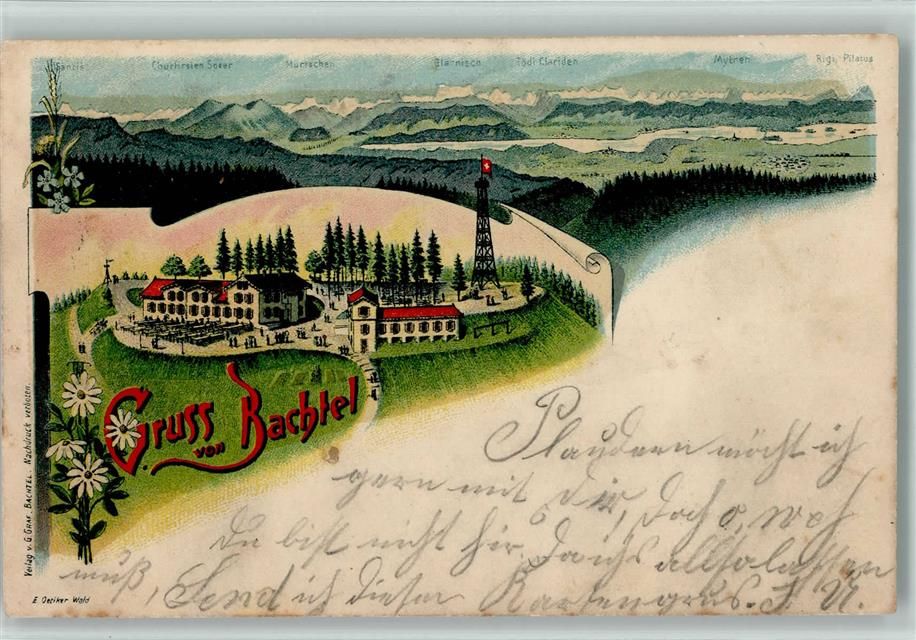 Säntis Churfirsten Speer Murtschen Glärnisch Tödi Clariden Mythen Rigi, Pilatus
Gruss
von Bachtel
Verlag v. G. Graf, Bachtel. Nachdruck verboten.
E. Oetiker Wald
Plaudern möcht ich
gern mit dir, doch o, weh
Du bist nicht hir. Da ichs
muß, Send ich diesen Kartengrus. J. U.